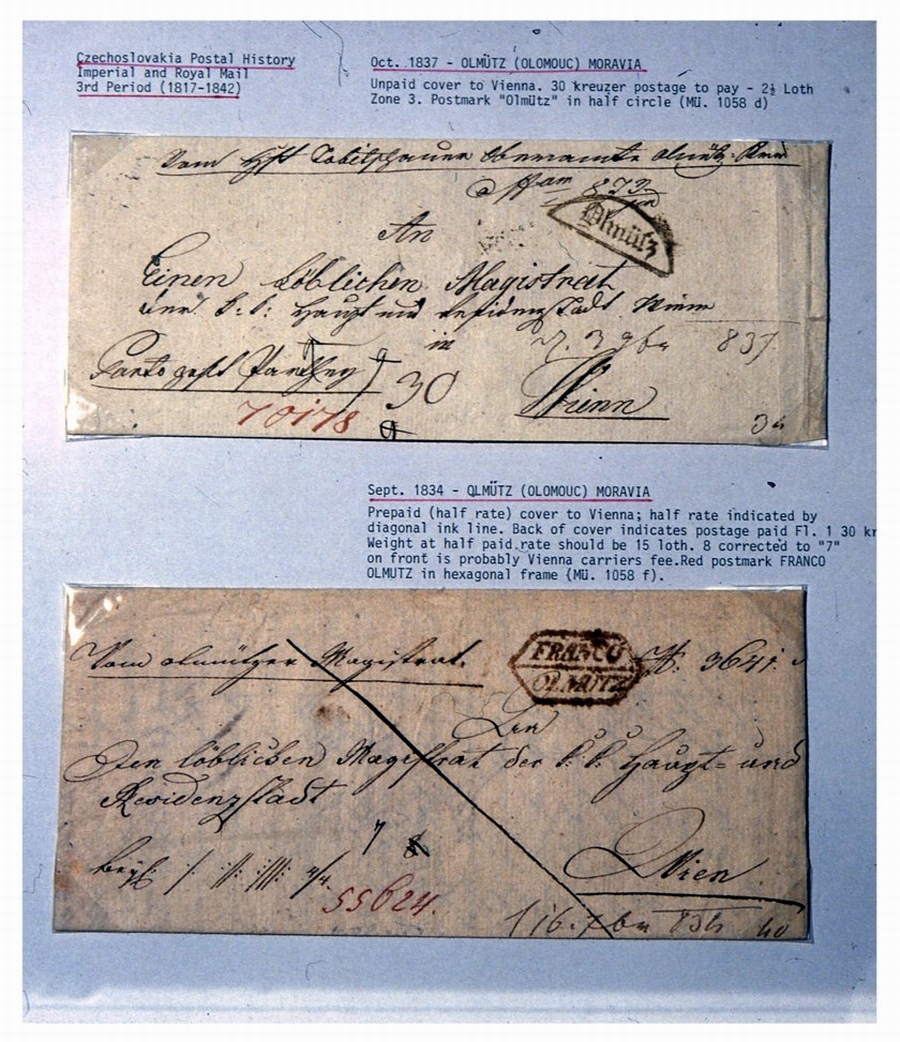 Czechoslovakia Postal History
Imperial and Royal Mail
3rd Period (1817-1842)
Oct. 1837 - OLMÜTZ (OLOMOUC) MORAVIA
Unpaid cover to Vienna. 30 kreuzer postage to pay - 2½ Loth
Zone 3. Postmark "Olmütz" in half circle (Mü. 1058 d)
Vom
872
Olmütz
An
Einen Löblichen Magistrat
der k: k: Haupt und Residenzstadt Wienn
in
837
30
Wienn
70178
Sept. 1834 - OLMÜTZ (OLOMOUC) MORAVIA
Prepaid (half rate) cover to Vienna; half rate indicated by
diagonal ink line. Back of cover indicates postage paid Fl. 1 30 kr
Weight at half paid rate should be 15 loth. 8 corrected to "7"
on front is probably Vienna carriers fee.Red postmark FRANCO
OLMUTZ in hexagonal frame (Mü. 1058 f).
Vom olmützer Magistrat.
FRANCO
OLMUTZ
3641.
Den löblichen Magistrat der k. k. Haupt= und
Residenzstadt
7 8
Wien
55624.